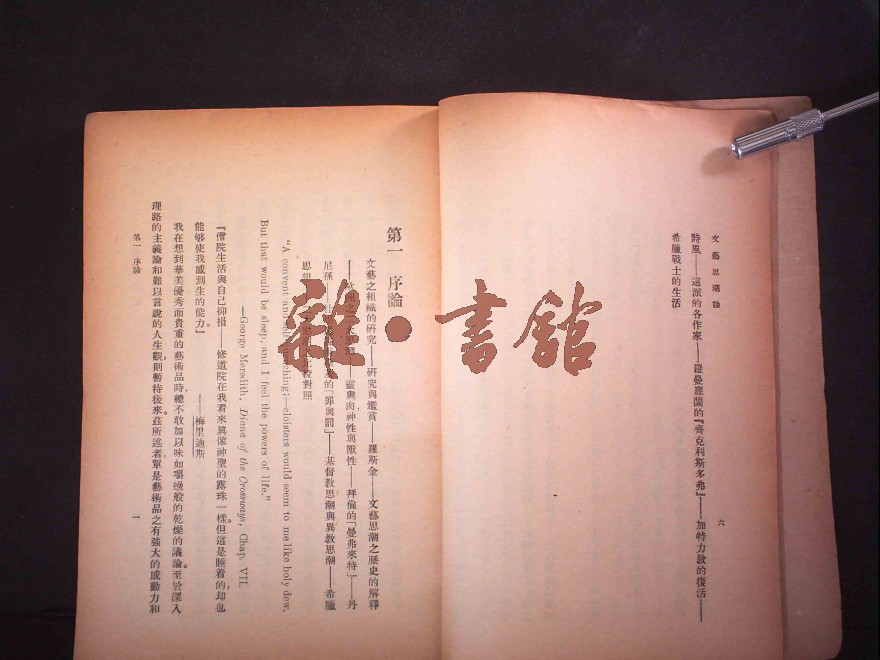 文藝思潮論
六
詩風——這派的各作家——羅曼羅蘭的『齊克利斯多弗』——加特力敎的復活——
希臘戰士的生活
第一 序論
文藝之組織的研究——研究與鑑賞——羅斯金——文藝思潮之歷史的解釋
大思潮——靈與肉神性與獸性——拜倫的「曼弗來特」——丹
尼孫——的「罪與罰」——基督敎思潮與異敎思潮——希臘
思想 比較對照
"A convent and quenching;—cloisters would seem to me like holy dew.
But that would be sleep, and I feel the powers of life."
—George Meredith, Diana of the Crossways, Chap. VII.
『僧院生活與自己抑損——修道院在我看來眞像神聖的露珠一樣。但這是睡着的,却也
能够使我感到生的能力』。
——梅里迪斯
我在想到華美優秀而貴重的藝術品時,總不敢加以味如嚼蠟般的乾燥的議論。至於深入
理路的主義論和難以言說的人生觀,則暫待後來。茲所述者單是藝術品之有強大的感動力和
第一 序論
一
雜·書館